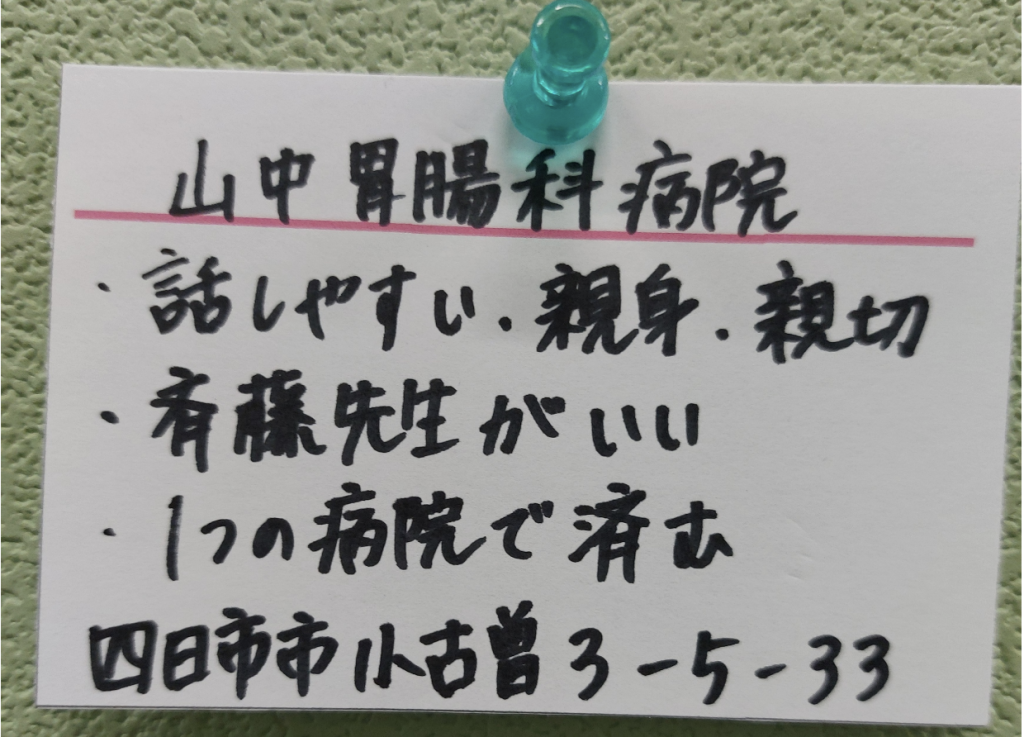 山中胃腸科病院
・話しやすい・親身・親切
・斉藤先生がいい
・1つの病院で済む
四日市市小古曽3-5-33